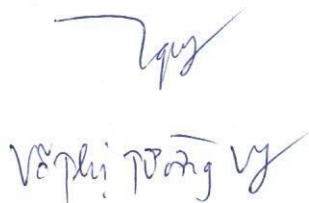 Vy
Võ Thị Tường Vy